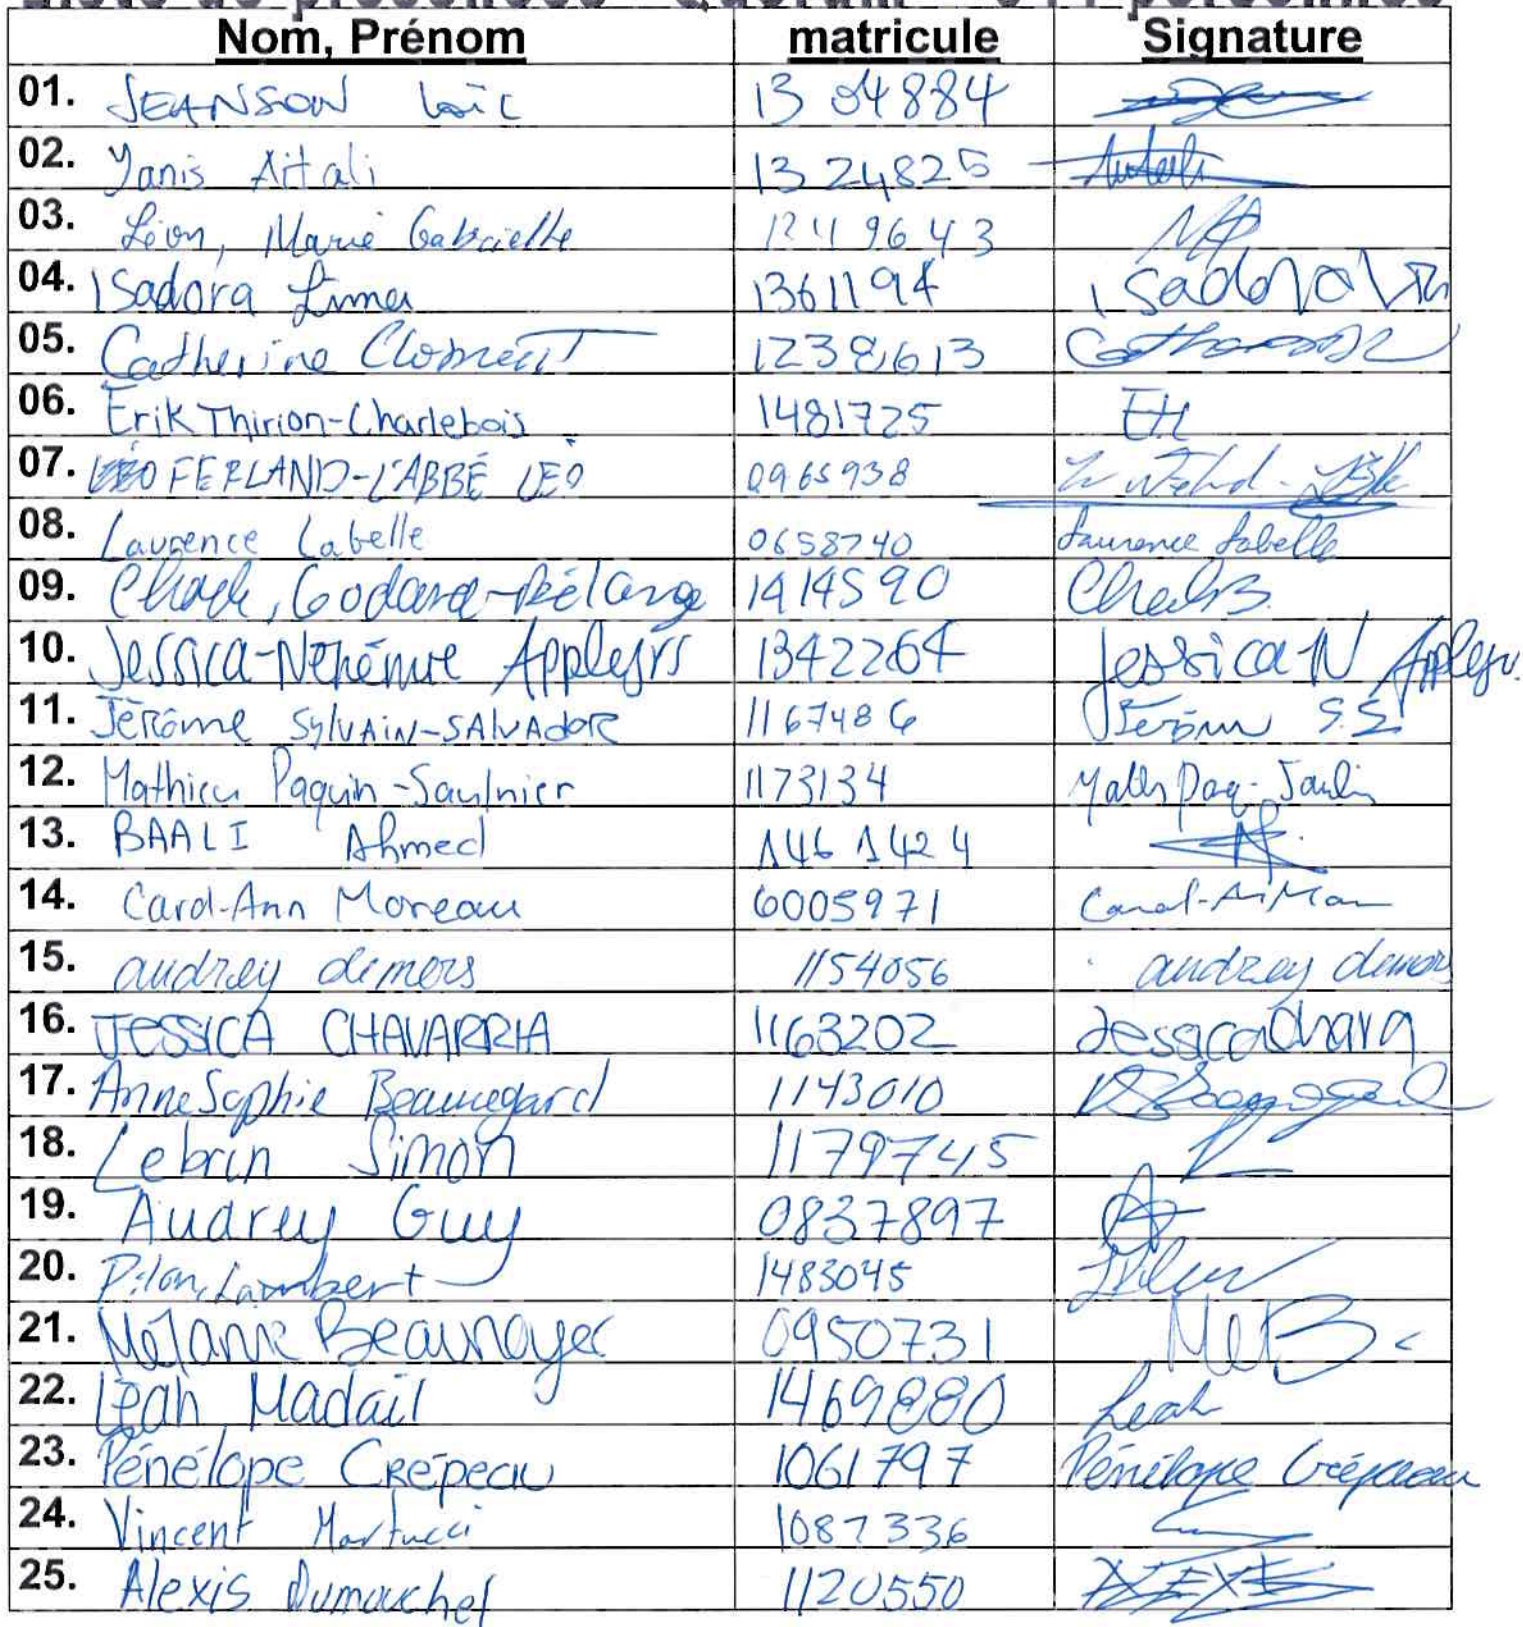 Nom, Prénom matricule Signature
01. JEANSON Loïc 13 04884
02. Yanis Aitali 1324825 Aitali
03. Léon, Marie Gabrielle 1241 9643
04. Isadora Lima 1361194 Isadora Lim
05. Catherine Clément 1238613
06. Erik Thirion-Charlebois 1481725
07. FERLAND-L'ABBÉ LÉO 0965938
08. Laurence Labelle 0658740 Laurence Labelle
09. Godard-Bélanger 1414590
10. Jessica-Néhémie Applejrs 1342264 Jessica N
11. Jérôme Sylvain-Salvador 1167486 Jérôme S.S
12. Mathieu Paquin-Saulnier 1173134
13. BAALI Ahmed 146 1424
14. Carol-Ann Moreau 6005971
15. audrey demers 1154056 audrey demers
16. JESSICA CHAVARRIA 1163202
17. Anne Sophie Beauregard 1143010
18. Lebrun Simon 1179745
19. Audrey Guy 0837897
20. Pilon, Lambert 1483045
21. Mélanie Beaunoyer 0950731
22. Leah Madail 1469880 Leah
23. Pénélope Crépeau 1061797 Pénélope Crépeau
24. Vincent Martucci 1087336
25. Alexis Dumouchel 1120550 ALEXIS